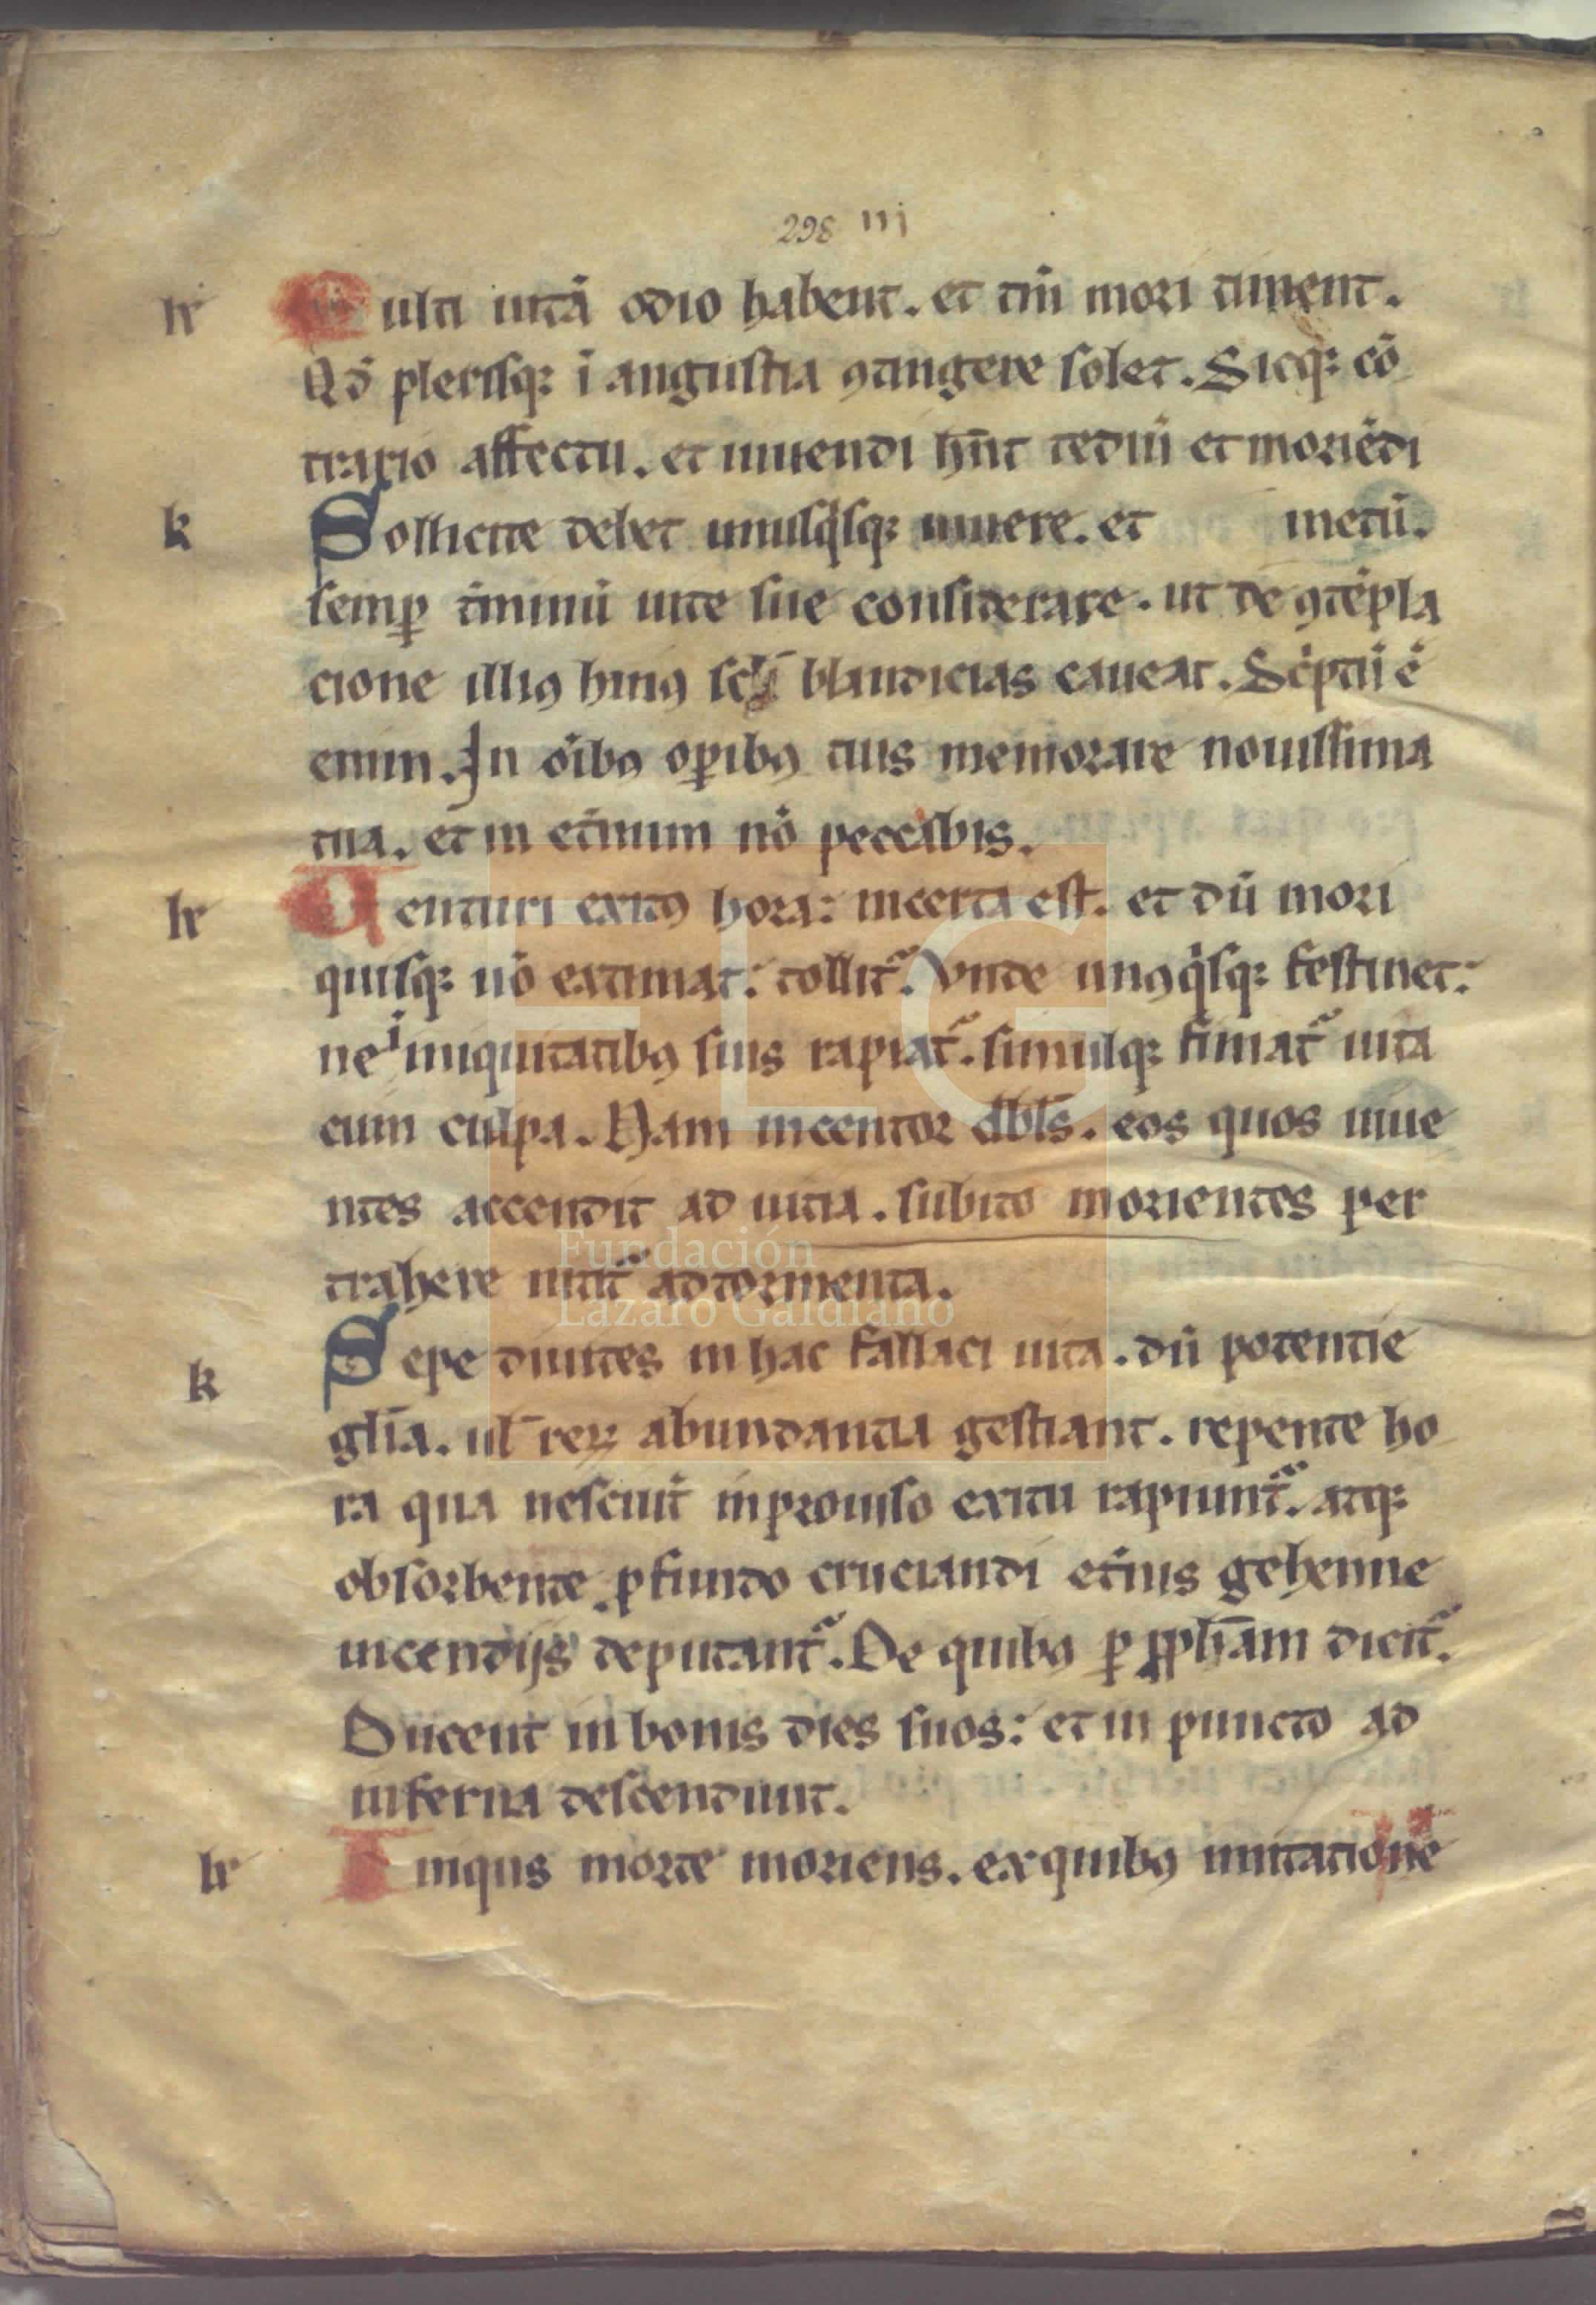 298 iij
k Multi uitā odio habent. et tm̄ mori timent.
Qđ plerisq; ī angustia ꝯtingere solet. Sicq; cō
trario affectu. et uiuendi hn̄t tediū et moriēdi
k Sollicite debet unusqͥsq; uiuere. et metū.
semꝑ t̉minū uite sue considerare. ut de ꝯtēpla
cione illiꝰ huiꝰ scl̄i blandicias caueat. Sc̉ptū ē
enim. In oībꝰ oꝑibꝰ tuis memorare nouissima
tua. et in et̉num nō peccabis.
k Uenturi exitꝰ hora: incerta est. et dū mori
quisq; nō extimat: tollit᷑. Vnde unꝰqͥsq; festinet:
ne i iniquitatibꝰ suis rapiat᷑. simulq; finiat᷑ uita
cum culpa. Nam incentor dbl̄s. eos quos uiue
ntes accendit ad uitia. subito morientes per
trahere nitit᷑ ad tormenta.
k Sepe diuites in hac fallaci uita. dū potentie
gl̄ia. ul̄ reꝝ abundantia gestiant. repente ho
ra qua nesciūt inprouiso exitu rapiunt᷑. atq;
obsorbente ꝓfundo cruciandi et̉nis gehenne
incendijs deputant᷑. De quibꝰ ꝑ ꝓph̄am dicit᷑.
Ducent in bonis dies suos: et in puncto ad
inferna descendunt.
k Iniqus morte moriens. ex quibꝰ imitationē
Fundación
Lázaro Galdiano
FLG